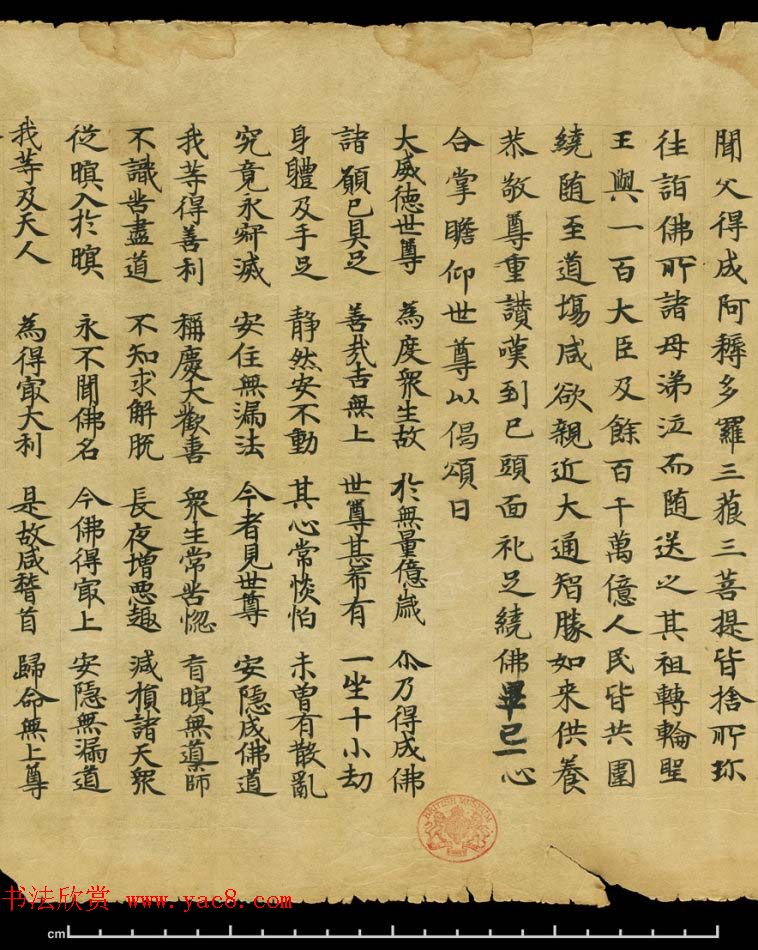 聞父得成阿耨多羅三藐三菩提皆捨所珎
往詣佛所諸母涕泣而随送之其祖轉輪聖
王與一百大臣及餘百千萬億人民皆共圍
繞随至道塲咸欲親近大通智勝如来供養
恭敬尊重讃嘆到已頭面礼足繞佛畢已一心
合掌瞻仰世尊以偈頌曰
大威德世尊 為度衆生故 於無量億歳 尒乃得成佛
諸願已具足 善㢤吉無上 世尊甚希有 一坐十小劫
身體及手足 静然安不動 其心常惔怕 未曽有散亂
究竟永㝛滅 安住無漏法 今者見世尊 安隱成佛道
我等得善利 稱慶大歡喜 衆生常苦惚 盲瞑無導師
不識苦盡道 不知求解脱 長夜增惡趣 減損諸天衆
從瞑入於瞑 永不聞佛名 今佛得冣上 安隱無漏道
我等及天人 為得冣大利 是故咸稽首 歸命無上尊
BRITISH MUSEUM
书法欣赏 www.yac8.com
cm